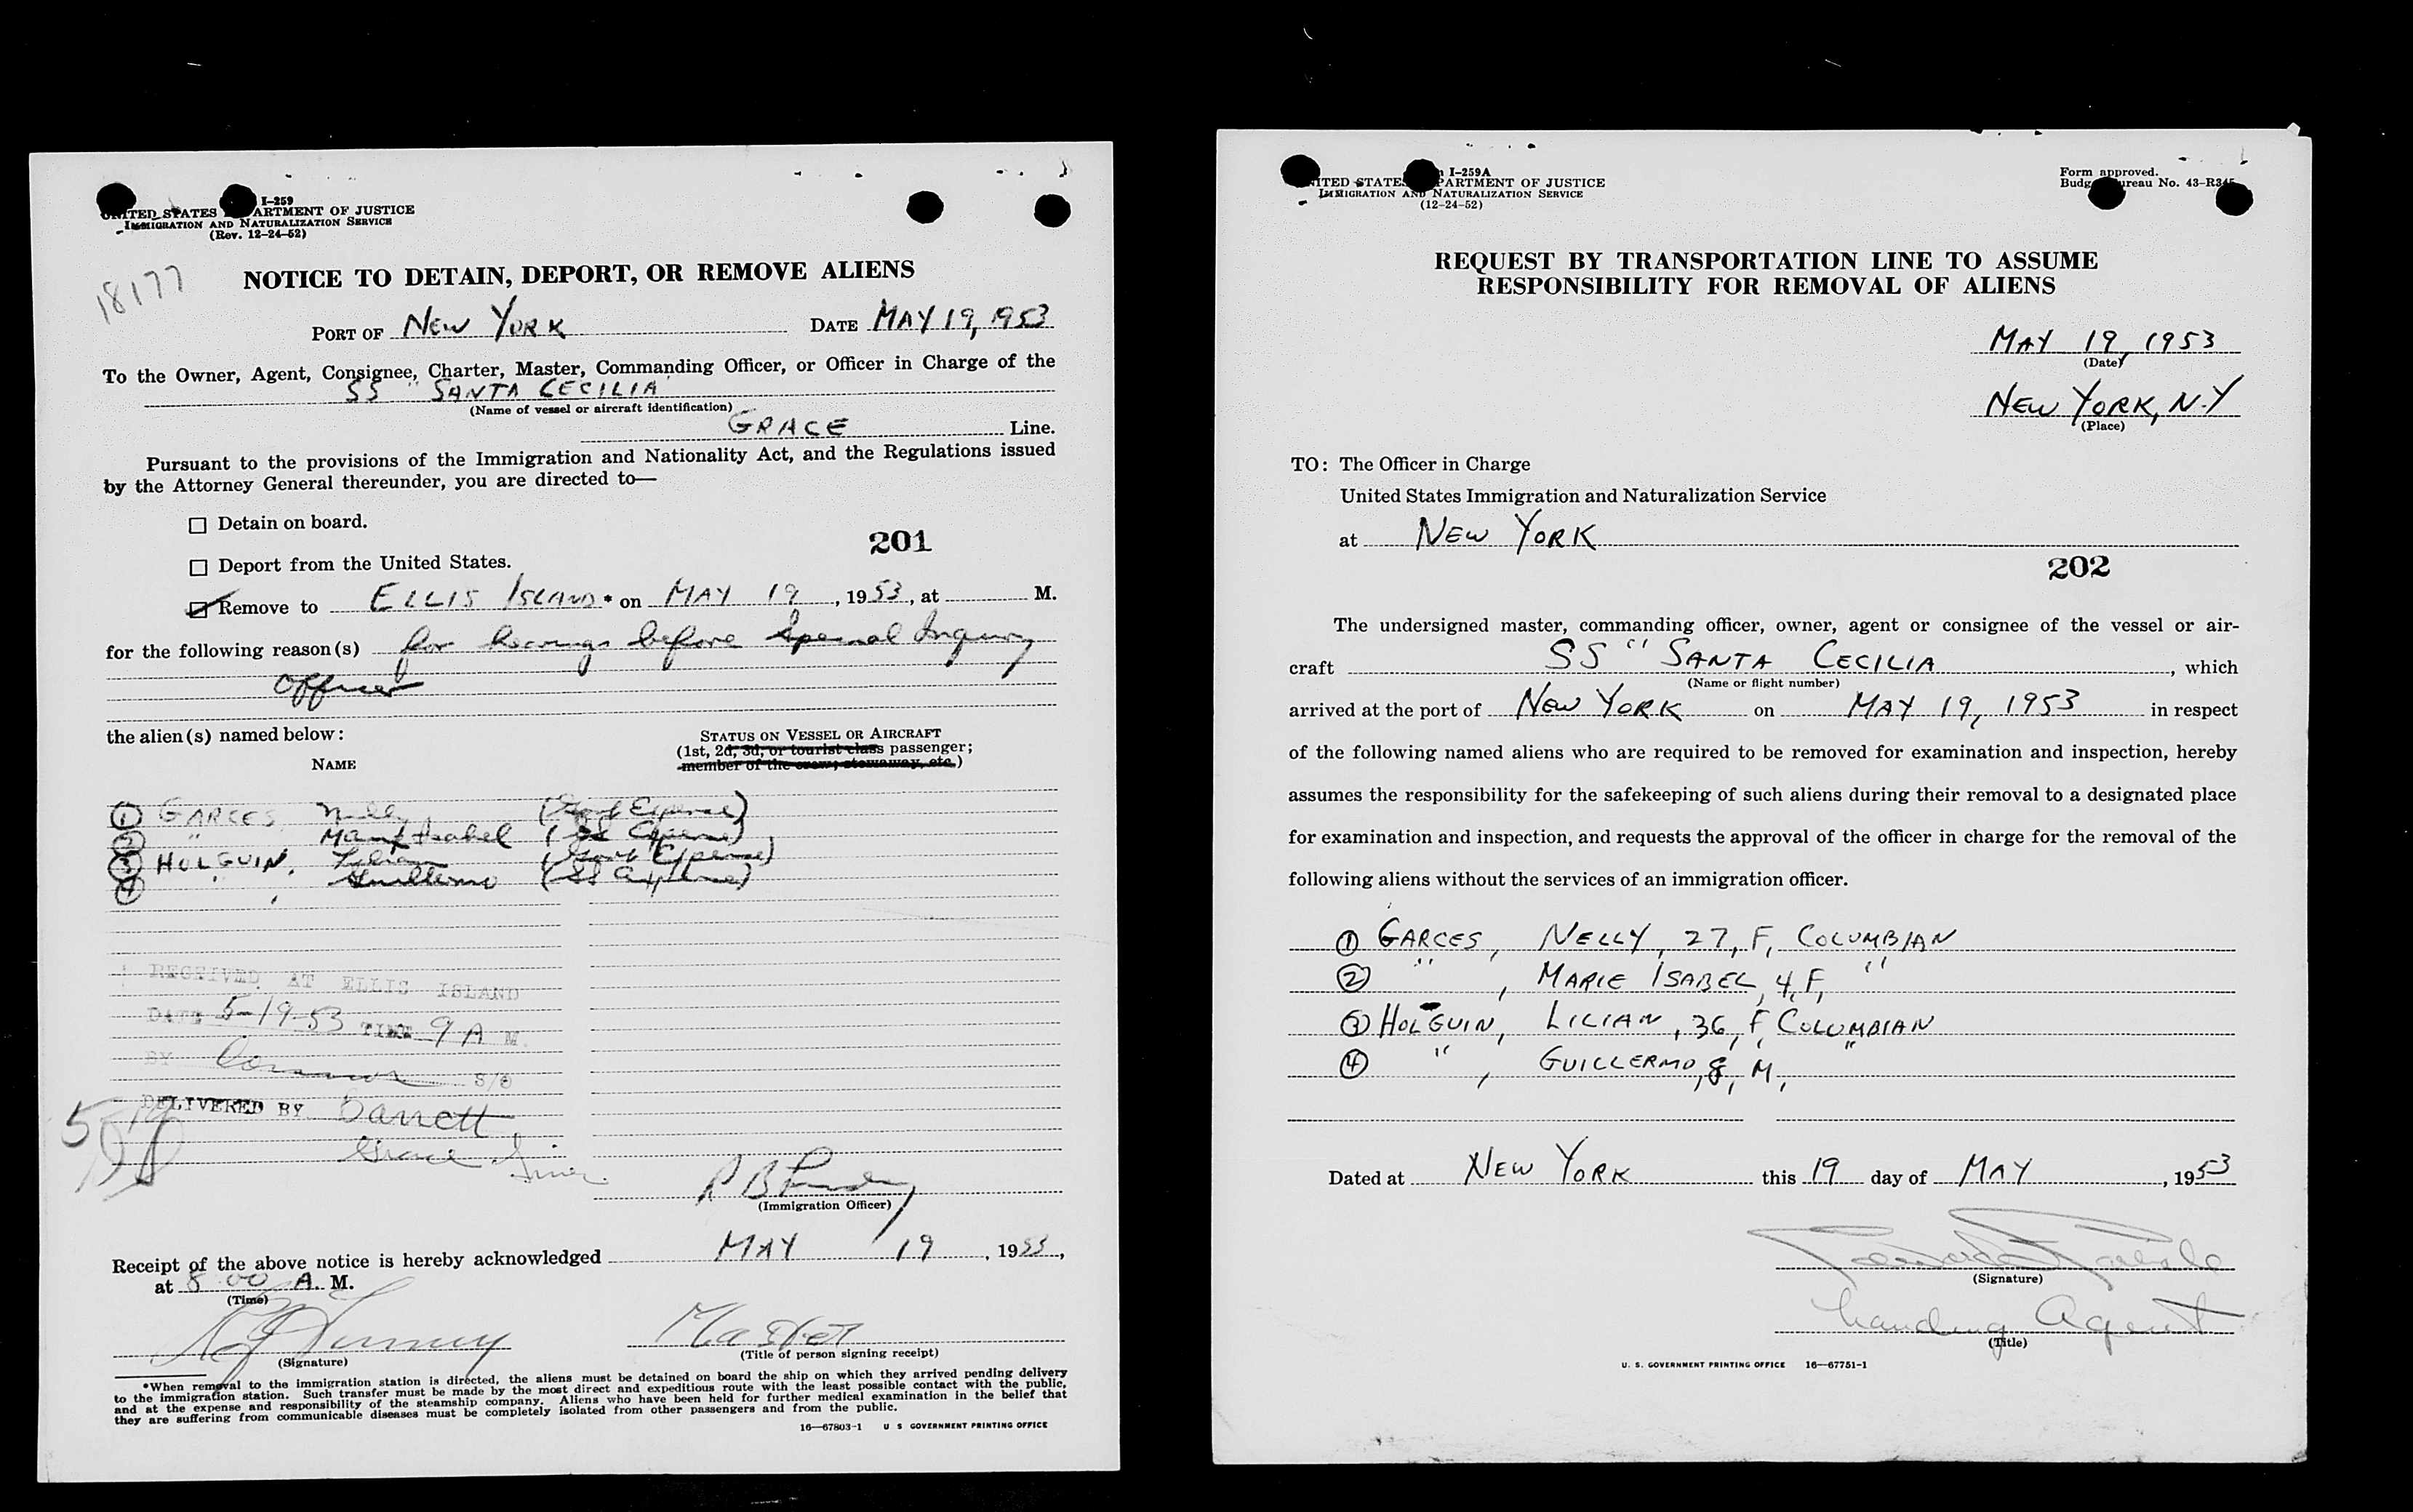 I-259
UNITED STATES ARTMENT OF JUSTICE
IMMIGRATION AND NATURALIZATION SERVICE
(Rev. 12-24-52)
18177
NOTICE TO DETAIN, DEPORT, OR REMOVE ALIENS
PORT OF NEW YORK DATE MAY 19, 1953
To the Owner, Agent, Consignee, Charter, Master, Commanding Officer, or Officer in Charge of the
SS "SANTA CECILIA
(Name of vessel or aircraft identification)
GRACE Line.
Pursuant to the provisions of the Immigration and Nationality Act, and the Regulations issued
by the Attorney General thereunder, you are directed to—
Detain on board.
201
Deport from the United States.
Remove to ELLIS ISLAND* on MAY 19, 1953, at M.
for the following reason(s) for hearings before Special Inquiry
Officer
the alien(s) named below:
STATUS ON VESSEL OR AIRCRAFT
(1st, 2d, 3d, or tourist class passenger;
member of the crew; stowaway, etc.)
NAME
① GARCES, Nelly (Govt Expense)
② " Marie Isabel (SS Expense)
③ HOLGUIN, Lilian (Govt Expense)
④ , Guillermo (SS Expense)
RECEIVED AT ELLIS ISLAND
DATE 5-19-53 TIME 9 A M.
BY S/O
DELIVERED BY Barrett
5/19
Grace Line
(Immigration Officer)
Receipt of the above notice is hereby acknowledged MAY 19, 1953,
at 8 00 A. M.
(Time)
Master
(Signature)
(Title of person signing receipt)
*When removal to the immigration station is directed, the aliens must be detained on board the ship on which they arrived pending delivery
to the immigration station. Such transfer must be made by the most direct and expeditious route with the least possible contact with the public,
and at the expense and responsibility of the steamship company. Aliens who have been held for further medical examination in the belief that
they are suffering from communicable diseases must be completely isolated from other passengers and from the public.
16—67803-1 U S GOVERNMENT PRINTING OFFICE
I-259A
UNITED STATES PARTMENT OF JUSTICE
IMMIGRATION AND NATURALIZATION SERVICE
(12-24-52)
Form approved.
Budg ureau No. 43-R345
REQUEST BY TRANSPORTATION LINE TO ASSUME
RESPONSIBILITY FOR REMOVAL OF ALIENS
MAY 19, 1953
(Date)
NEW YORK, N.Y
(Place)
TO: The Officer in Charge
United States Immigration and Naturalization Service
at NEW YORK
202
The undersigned master, commanding officer, owner, agent or consignee of the vessel or air-
craft SS "SANTA CECILIA, which
(Name or flight number)
arrived at the port of NEW YORK on MAY 19, 1953 in respect
of the following named aliens who are required to be removed for examination and inspection, hereby
assumes the responsibility for the safekeeping of such aliens during their removal to a designated place
for examination and inspection, and requests the approval of the officer in charge for the removal of the
following aliens without the services of an immigration officer.
① GARCES, NELLY, 27, F, COLUMBIAN
② " , MARIE ISABEL, 4, F, "
③ HOLGUIN, LILIAN, 36, F, COLUMBIAN
④ " , GUILLERMO, 8, M, "
Dated at NEW YORK this 19 day of MAY, 1953
(Signature)
Landing Agent
(Title)
U. S. GOVERNMENT PRINTING OFFICE 16—67751-1